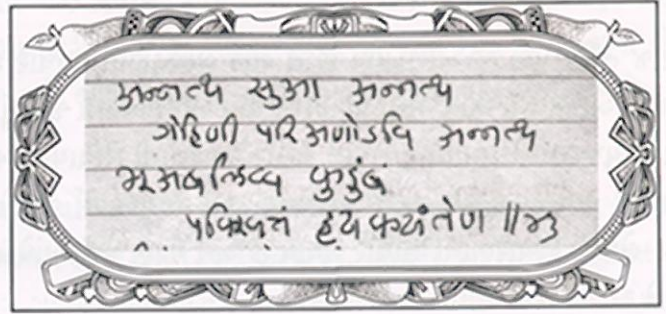 अन्नत्थ सुआ अन्नत्थ
गेहिणी परिअणोऽवि अन्नत्थ
भूअबलिव्व कुडुंबं
पक्खित्तं हयकयंतेण ॥